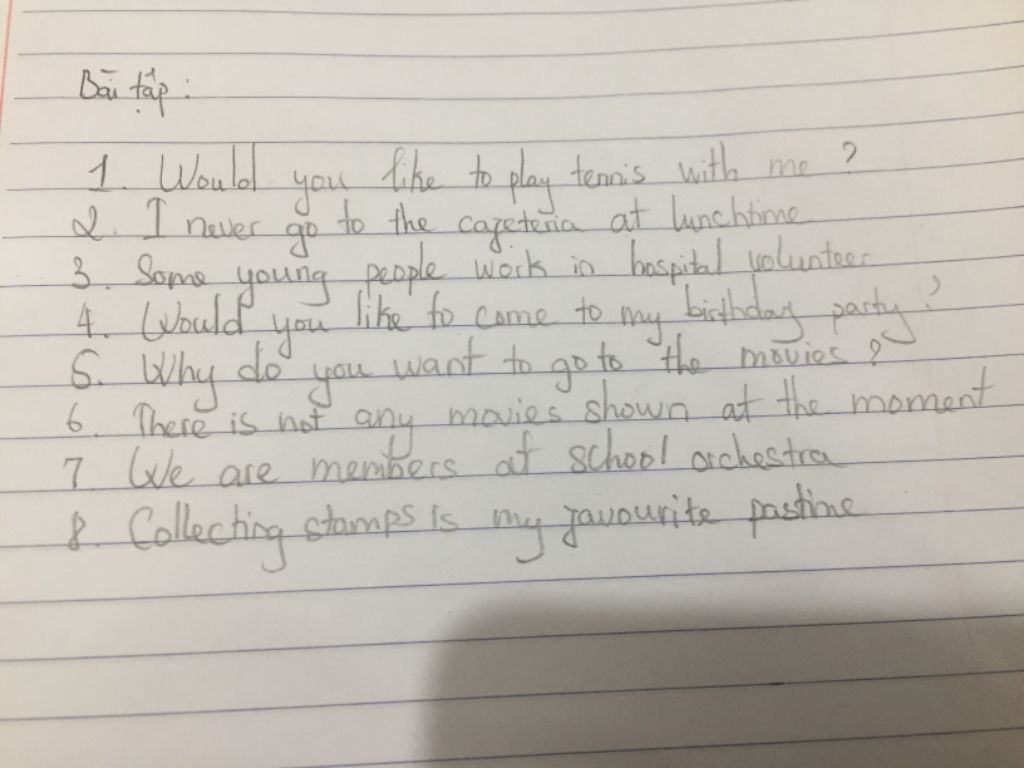 Bài tập :
1. Would you like to play tennis with me ?
2. I never go to the cafeteria at lunchtime
3. Some young people work in hospital volunteer
4. Would you like to come to my birthday party ?
5. Why do you want to go to the movies ?
6. There is not any movies shown at the moment
7 We are members of school orchestra
8. Collecting stamps is my favourite pastime